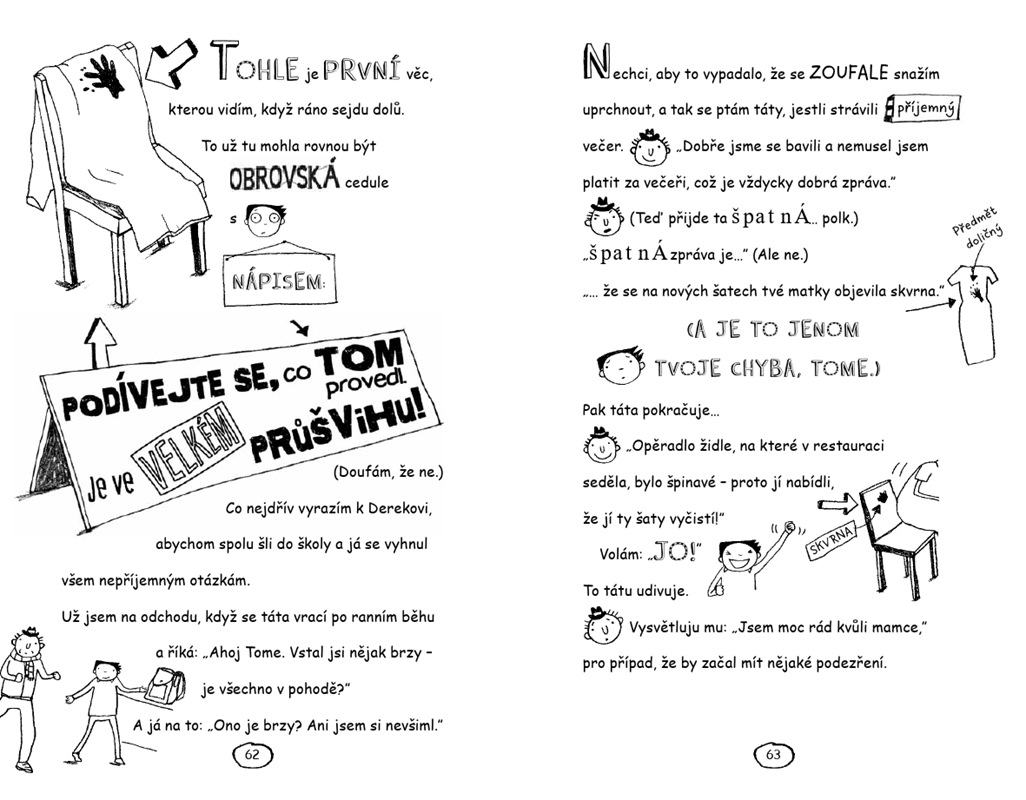 TOHLE je PRVNÍ věc,
kterou vidím, když ráno sejdu dolů.
To už tu mohla rovnou být
OBROVSKÁ cedule
s
NÁPISEM:
PODÍVEJTE SE, co TOM
provedl.
Je ve VELKÉM PRŮŠViHU!
(Doufám, že ne.)
Co nejdřív vyrazím k Derekovi,
abychom spolu šli do školy a já se vyhnul
všem nepříjemným otázkám.
Už jsem na odchodu, když se táta vrací po ranním běhu
a říká: „Ahoj Tome. Vstal jsi nějak brzy –
je všechno v pohodě?”
A já na to: „Ono je brzy? Ani jsem si nevšiml.”
62
Nechci, aby to vypadalo, že se ZOUFALE snažím
uprchnout, a tak se ptám táty, jestli strávili příjemný
večer. „Dobře jsme se bavili a nemusel jsem
platit za večeři, což je vždycky dobrá zpráva.”
(Teď přijde ta špatnÁ.. polk.)
„špatnÁ zpráva je…” (Ale ne.)
„… že se na nových šatech tvé matky objevila skvrna.”
Předmět
doličný
(A JE TO JENOM
TVOJE CHYBA, TOME.)
Pak táta pokračuje…
„Opěradlo židle, na které v restauraci
seděla, bylo špinavé – proto jí nabídli,
že jí ty šaty vyčistí!”
SKVRNA
Volám: „JO!”
To tátu udivuje.
Vysvětluju mu: „Jsem moc rád kvůli mamce,”
pro případ, že by začal mít nějaké podezření.
63